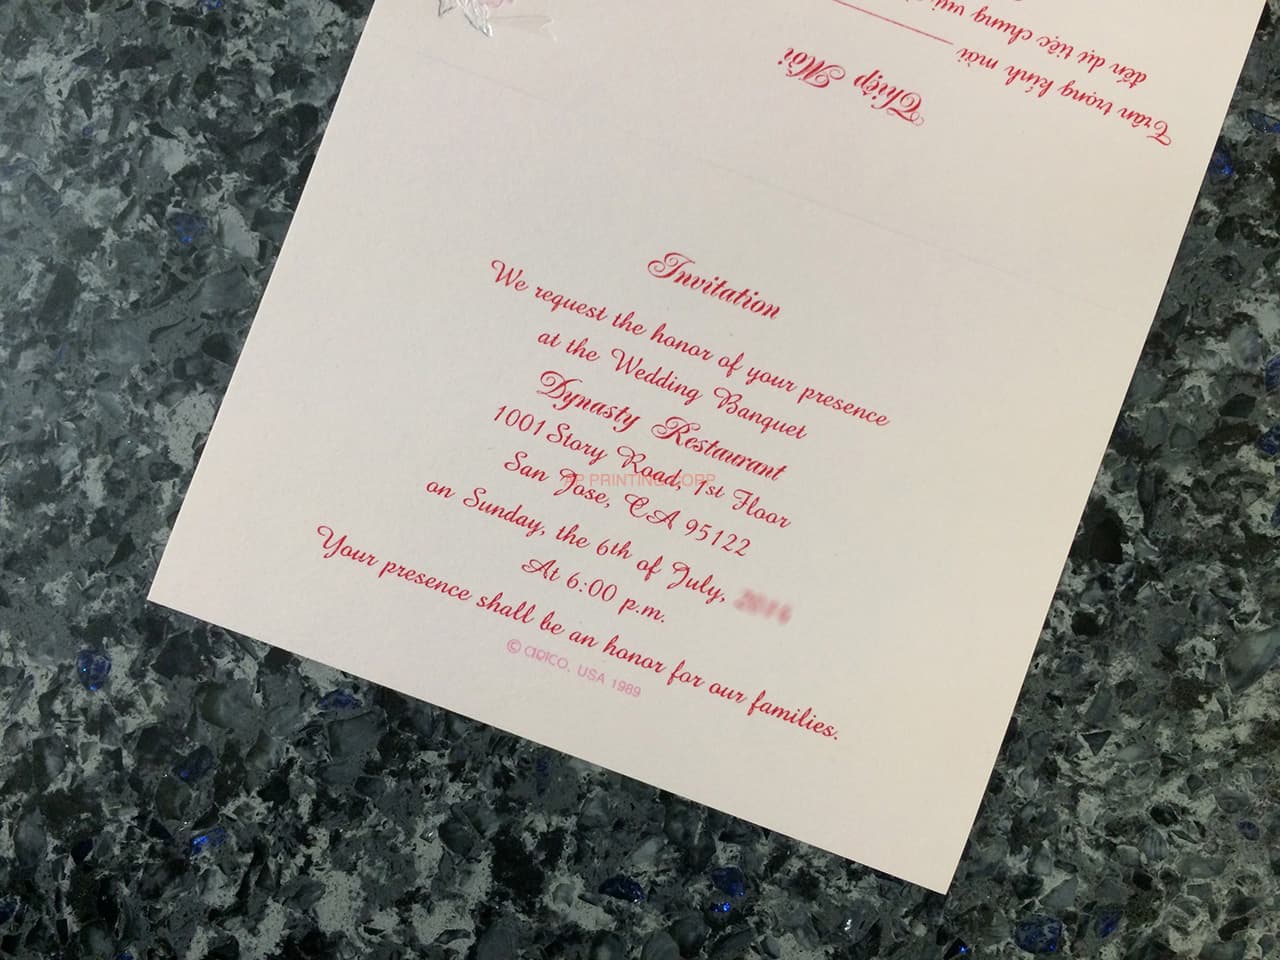 Invitation
We request the honor of your presence
at the Wedding Banquet
Dynasty Restaurant
1001 Story Road, 1st Floor
San Jose, CA 95122
on Sunday, the 6th of July,
At 6:00 p.m.
Your presence shall be an honor for our families.
© apico, USA 1989
AP PRINTING CORP
Thiệp Mời
Trân trọng kính mời
đến dự tiệc chung vui